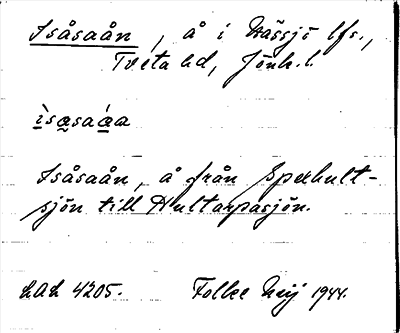 Isåsaån, å i Nässjö lfs.,
Tveta hd, Jönk. l.
ìsasaáa
Isåsaån, å från Sperhult-
sjön till Hultarpasjön.
LAL 4205. Folke Neij 1944.